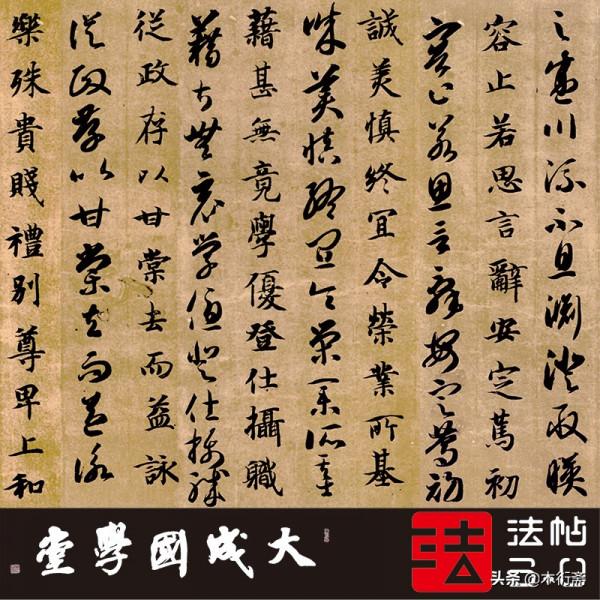 之盛川流不息淵澄取暎
容止若思言辭安定篤初
容止若思言辭安定篤初
誠美慎終宜令榮業所基
誠美慎終宜令榮業所基
藉甚無竟學優登仕攝職
藉甚無竟學優登仕攝職
從政存以甘棠去而益詠
從政存以甘棠去而益詠
樂殊貴賤禮別尊卑上和
大成國學堂
法
法帖
头条